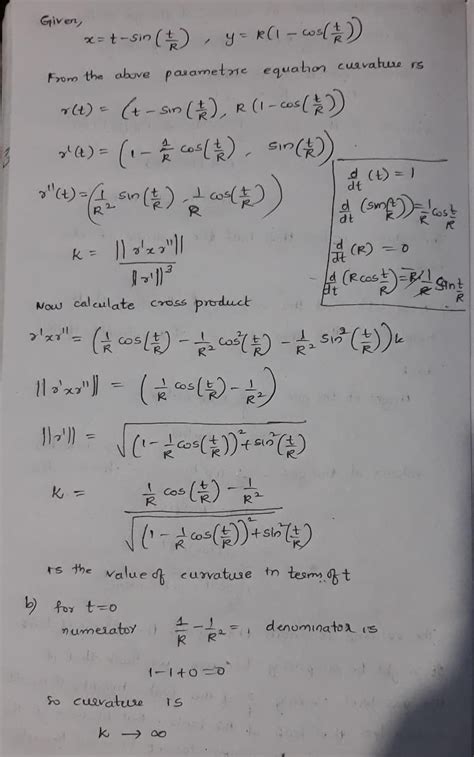 Given,
x = t - sin(t/R) , y = R(1 - cos(t/R))
From the above parametric equation curvature is
r(t) = (t - sin(t/R), R(1 - cos(t/R))
r'(t) = (1 - 1/R cos(t/R) , sin(t/R))
r''(t) = (1/R² sin(t/R) , 1/R cos(t/R))
k = ||r'xr''|| / ||r'||³
d/dt (t) = 1
d/dt (sin(t/R)) = 1/R cos t/R
d/dt (R) = 0
d/dt (R cos t/R) = -R/R sin t/R
Now calculate cross product
r'xr'' = (1/R cos(t/R) - 1/R² cos²(t/R) - 1/R² sin²(t/R))k
||r'xr''|| = (1/R cos(t/R) - 1/R²)
||r'|| = √((1 - 1/R cos(t/R))² + sin²(t/R))
k = (1/R cos(t/R) - 1/R²) / √((1 - 1/R cos(t/R))² + sin²(t/R))
is the value of curvature in term of t
b) for t=0
numerator 1/R - 1/R² = , denominator is
1-1+0=0
so curvature is
k → ∞